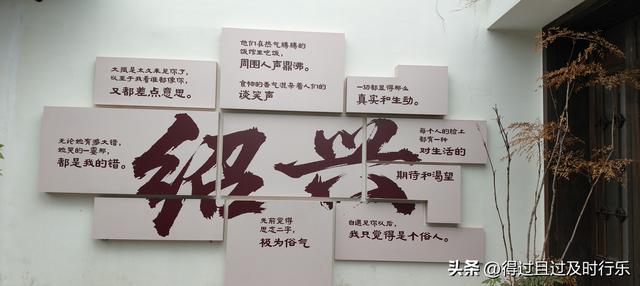 他们在热气腾腾的
饭馆里吃饭，
周围人声鼎沸。
食物的香气混杂着人们的
谈笑声
大概是太久未见你了，
以至于我看谁都像你，
又都差点意思。
一切都显得那么
真实和生动。
无论她有多大错，
她哭的一霎那，
都是我的错。
绍兴
每个人的脸上
都有一种
对生活的
期待和渴望
先前觉得
思念二字，
极为俗气
自遇见你以后，
我只觉得是个俗人。
头条 @得过且过及时行乐